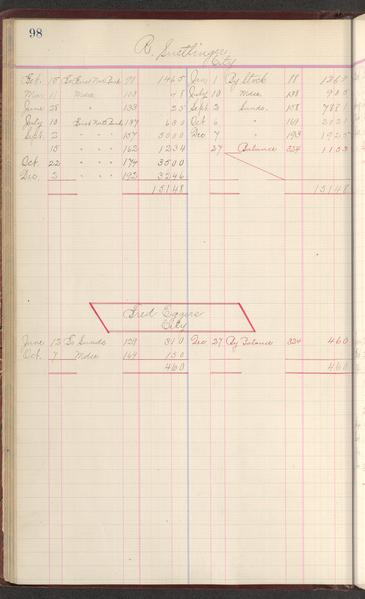 98
City
Feb. 15 To First Nat Bank 98 1465 Jan 1 By Stock 18
Mar 11 Mdse July 10 Mdse 138
June 28 " 133 25 Sept 2 Sunds. 158
July 10 First Nat Bank 137 680 Oct 6 " 169
Sept. 2 " " " 157 5000 Dec 7 " 193 1925
15 " " " 162 1234 27 Balance 224
Oct. 22 " " " 174 3500
Dec. 2 " " " 192 3246
15148 15148
Fred Eggers
City
June 13 To Sunds 129 310 Dec 27 By Balance 224 460
Oct. 7 Mdse 169 150
460 460